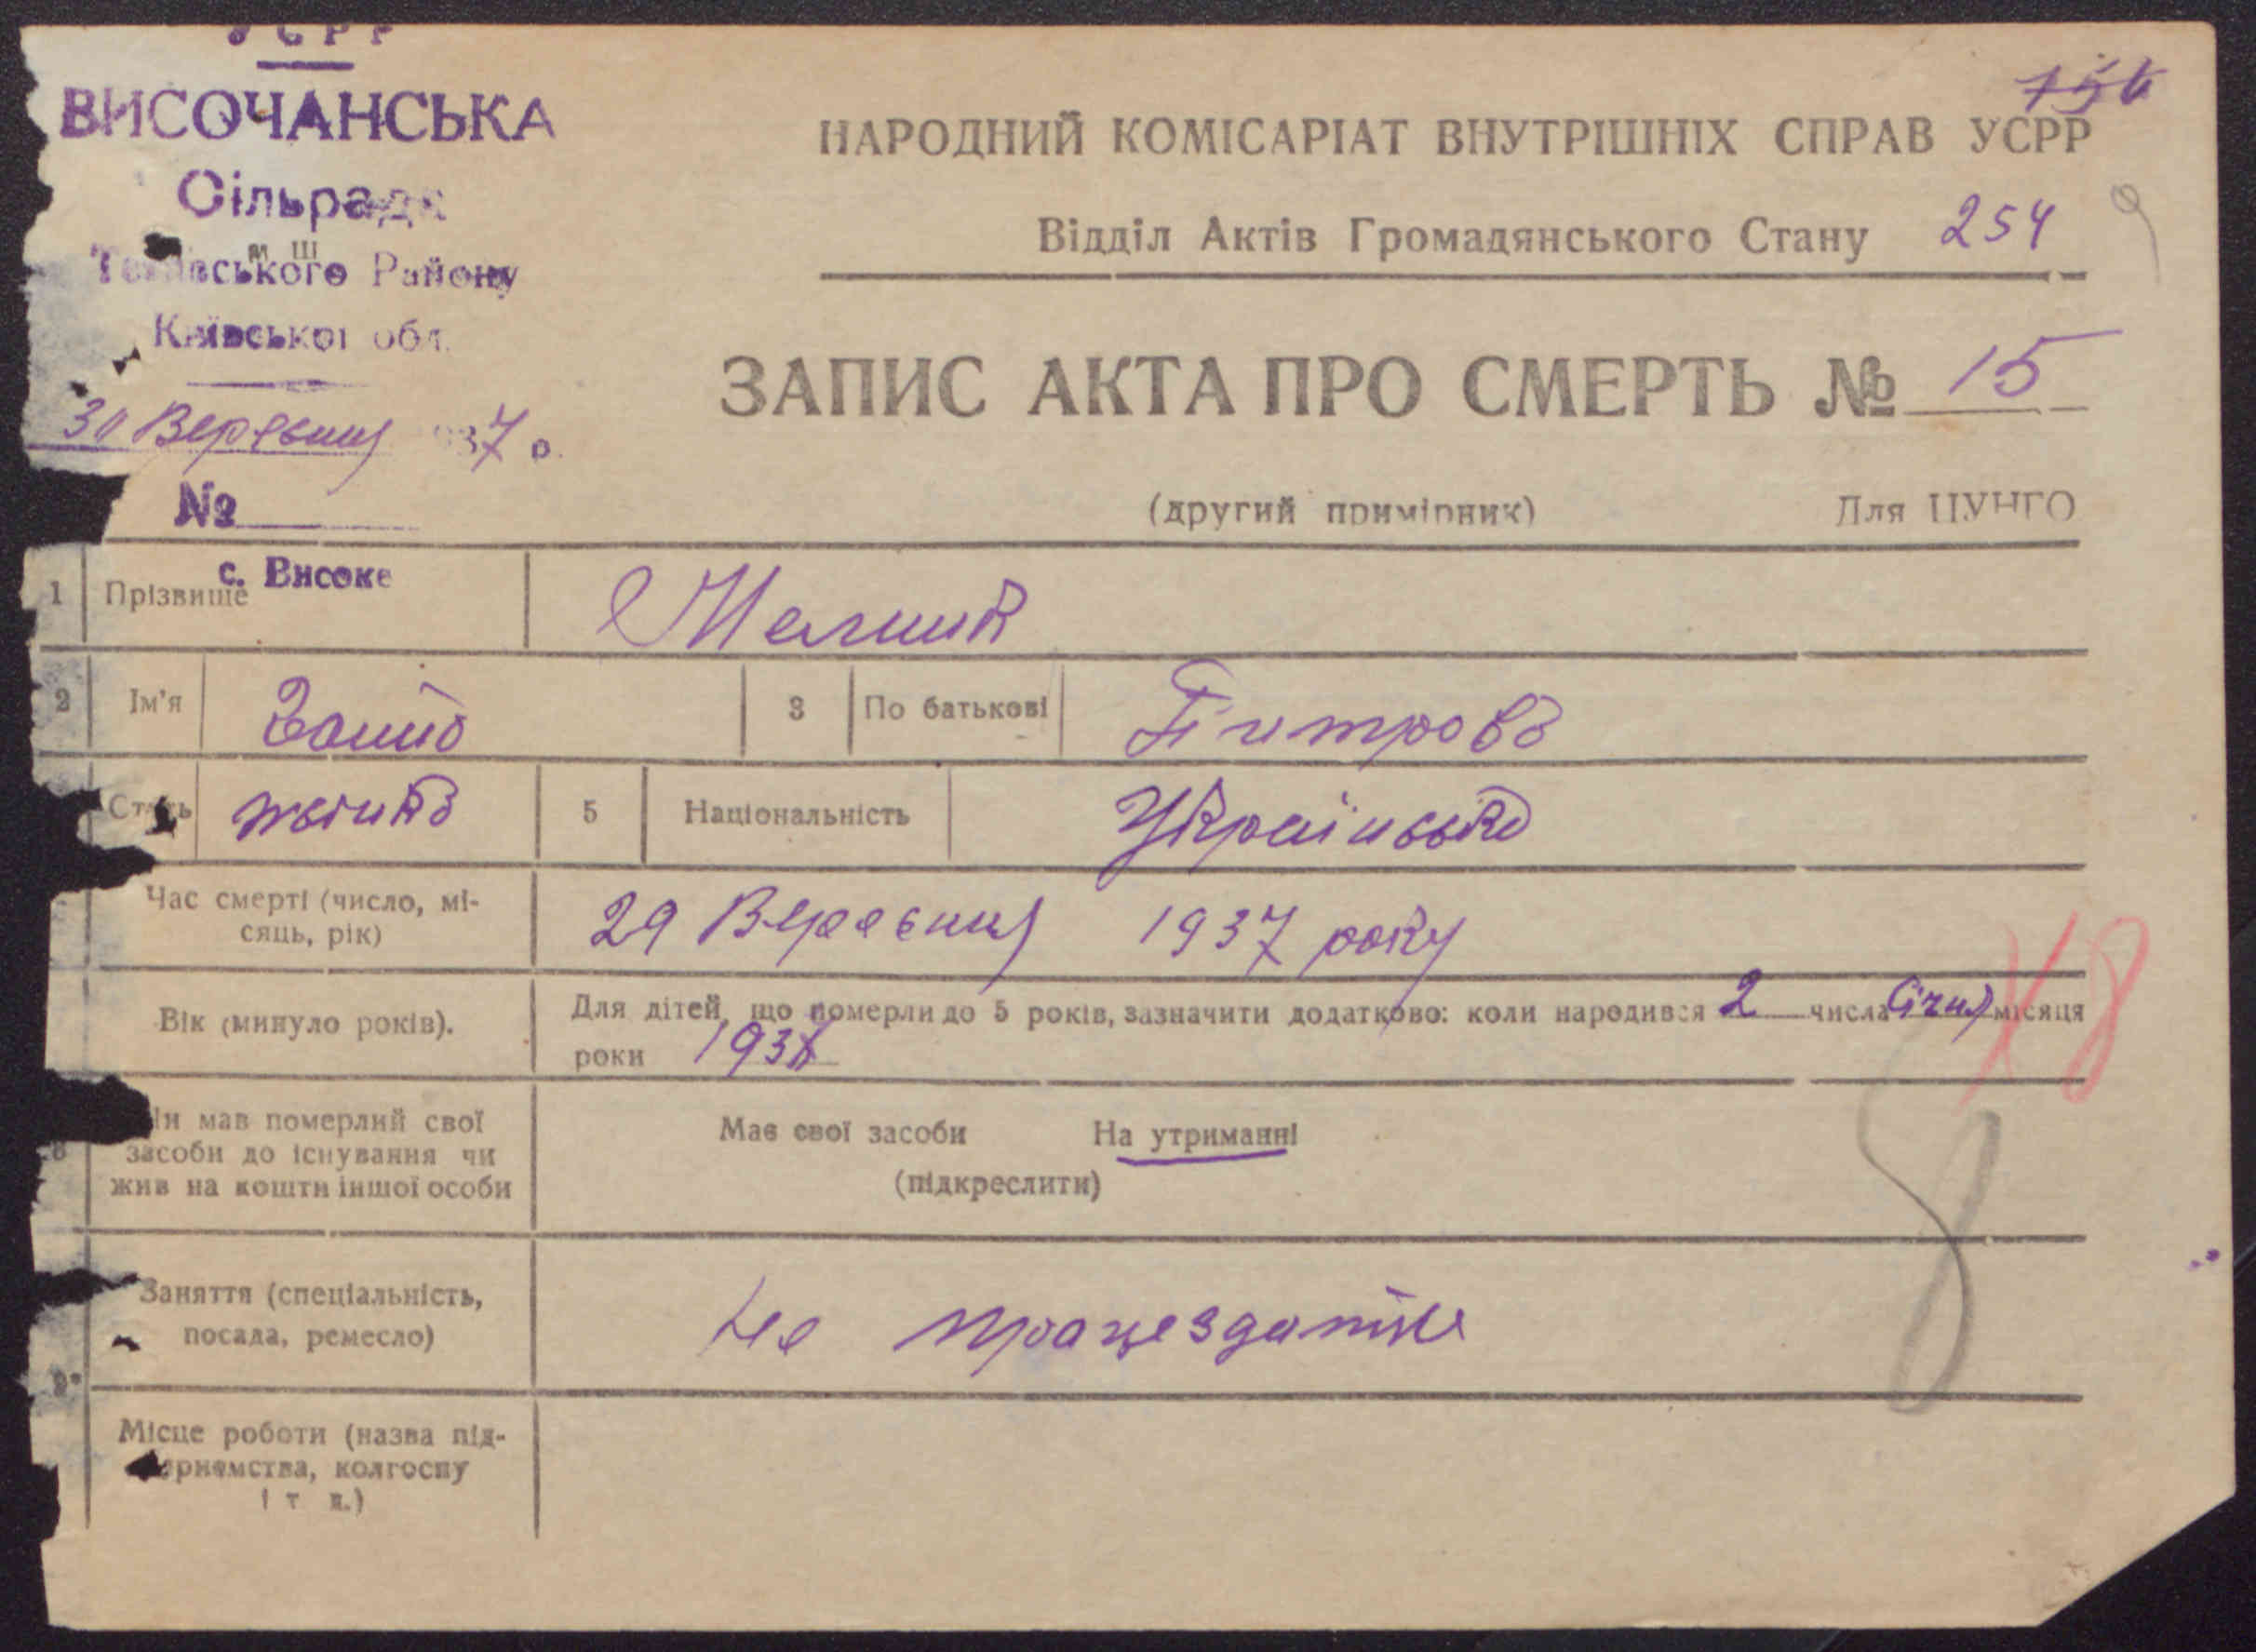 УСРР
ВИСОЧАНСЬКА
Сільрада
Району
Київської обл.
30 Вересня 1937 р.
№
с. Високе
154
НАРОДНИЙ КОМІСАРІАТ ВНУТРІШНІХ СПРАВ УСРР
Відділ Актів Громадянського Стану 254
ЗАПИС АКТА ПРО СМЕРТЬ № 15
(другий примірник) Для ЦУНГО
1 Прізвище
2 Ім'я 3 По батькові
Стать жіноча 5 Національність Українська
Час смерті (число, мі-
сяць, рік) 29 Вересня 1937 року
Вік (минуло років).
Для дітей, що померли до 5 років, зазначити додатково: коли народився 2 числа Січня місяця
роки
Чи мав померлий свої
засоби до існування чи
жив на кошти іншої особи
Має свої засоби На утриманні
(підкреслити)
Заняття (спеціальність,
посада, ремесло) Не працездатне
9
Місце роботи (назва під-
приємства, колгоспу
і т д.)